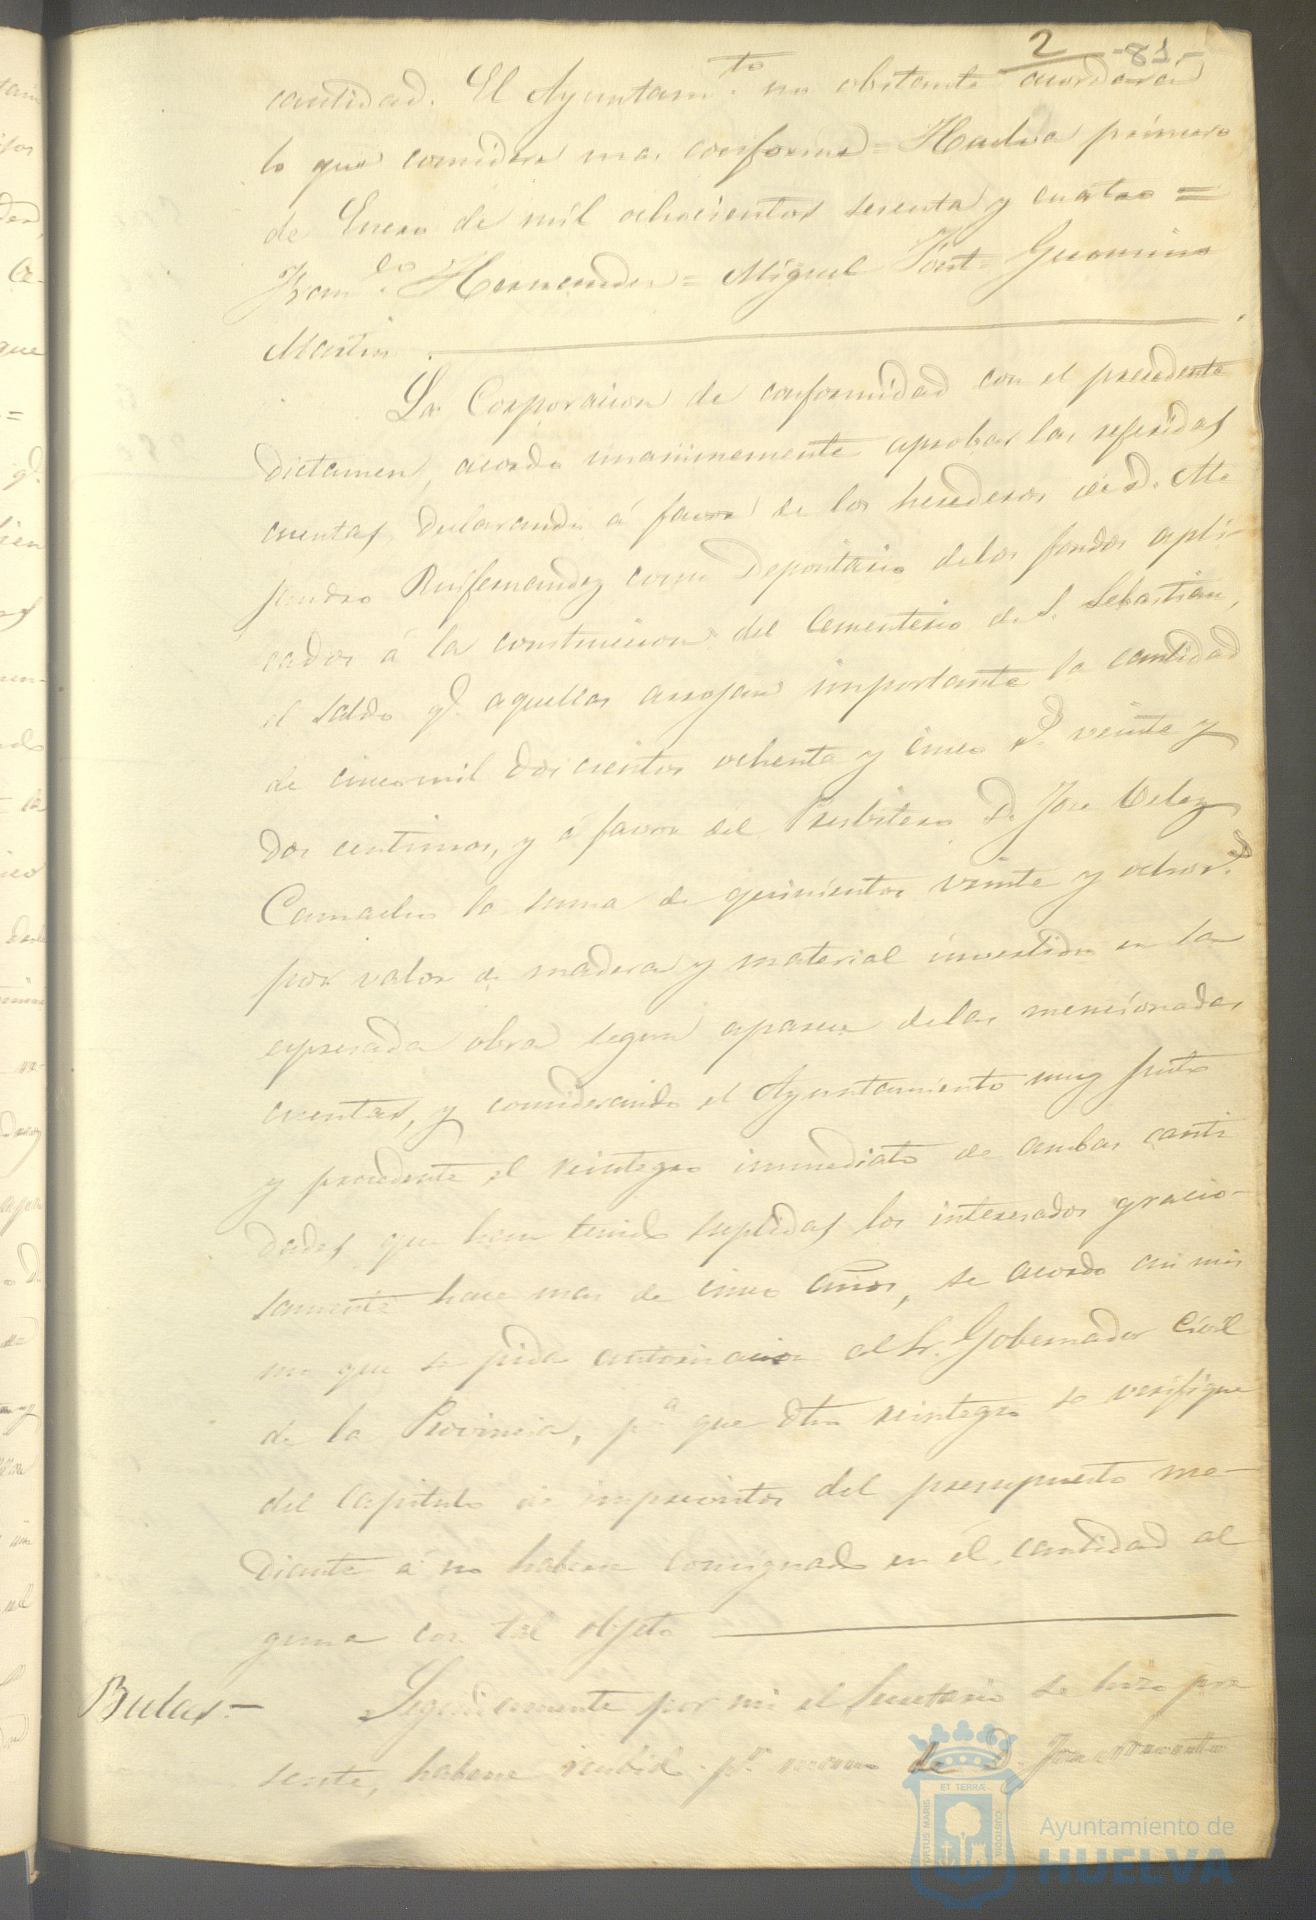 2 -81-
cantidad. El Ayuntam.to no obstante acordará
lo que considere mas conforme = Huelva primero
de Enero de mil ochocientos sesenta y cuatro =
Hernandez = Miguel Geronimo
Martin
La Corporacion de conformidad con el precedente
dictamen, acordó unanimemente aprobar las referidas
cuentas, declarando á favor de los herederos de D. Ale
jandro Ruifernandez como Depositario de los fondos apli-
cados á la construccion del Cementerio de S. Sebastian,
el saldo q.e aquellas arrojan importante la cantidad
de cinco mil doscientos ochenta y cinco r.s veinte y
dos centimos, y á favor del Presbitero D. Jose Velez
Camacho la suma de quinientos veinte y ocho r.s
por valor de madera y material invertido en la
expresada obra segun aparece de las mencionadas
cuentas, y considerando el Ayuntamiento muy justo
y procedente el reintegro inmediato de ambas canti
dades que han tenido suplidas los interesados gracio-
samente hace mas de cinco años, se acordo asi mis
mo que se pida autorizacion al Sr. Gobernador Civil
de la Provincia, p.a que dho reintegro se verifique
del capitulo de imprevistos del presupuesto me-
diante á no haberse consignado en él cantidad al
guna con tal objeto
Bulas.- Seguidamente por mi el Secretario se hizo pre
sente, haberse recibido p.r mano de D. Jose
PORTUS MARIS ET TERRÆ CUSTODIA
Ayuntamiento de
HUELVA